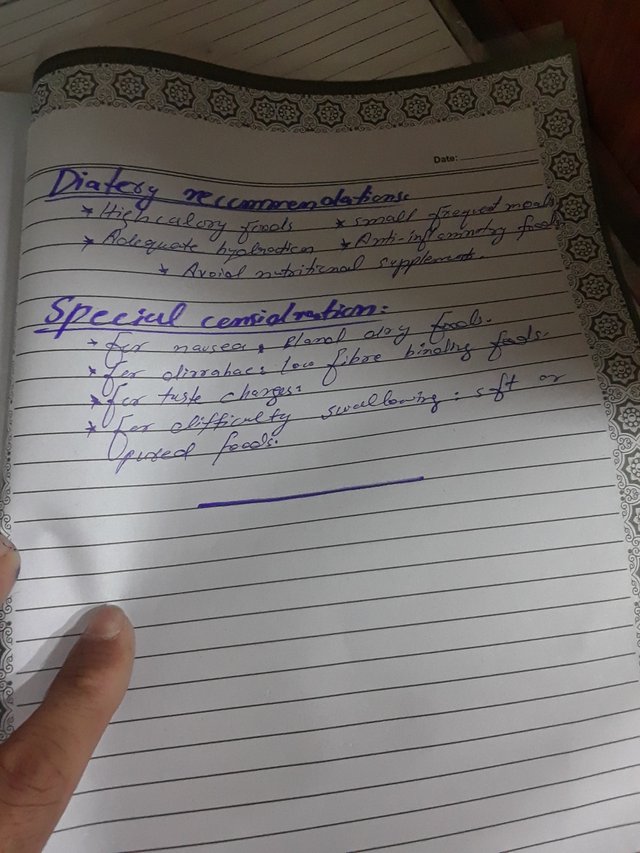 Date:
Diatery recommendations
* High calory foods * small frequent meals
* Adequate hydration * Anti-inflammtry foods
* Avoid nutritional supplements.
Special considration:
* for nausea: Bland dry foods.
* for dirrahae: low fibre binding foods.
* for taste changes:
* For difficulty swallowing: soft or
pureed foods.